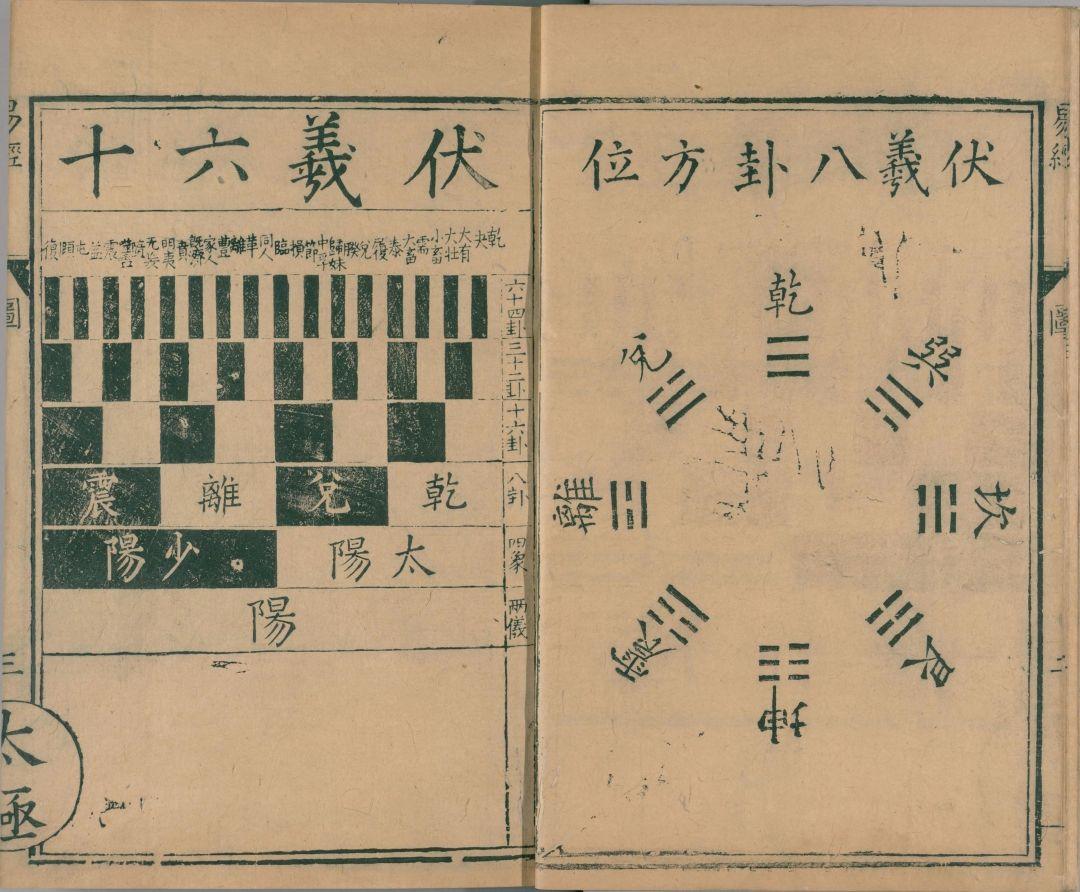 易經
圖
二
伏羲八卦方位
乾
巽
兌
坎
離
艮
震
坤
伏羲六十
乾 夬 大有 大壯 小畜 需 大畜 泰 履 兌 睽 歸妹 中孚 節 損 臨 同人 革 離 豐 家人 既濟 賁 明夷 无妄 隨 噬嗑 震 益 屯 頤 復
六十四卦
三十二卦
十六卦
八卦 乾 兌 離 震
四象 太陽 少陽
兩儀 陽
易經
圖
三
太極